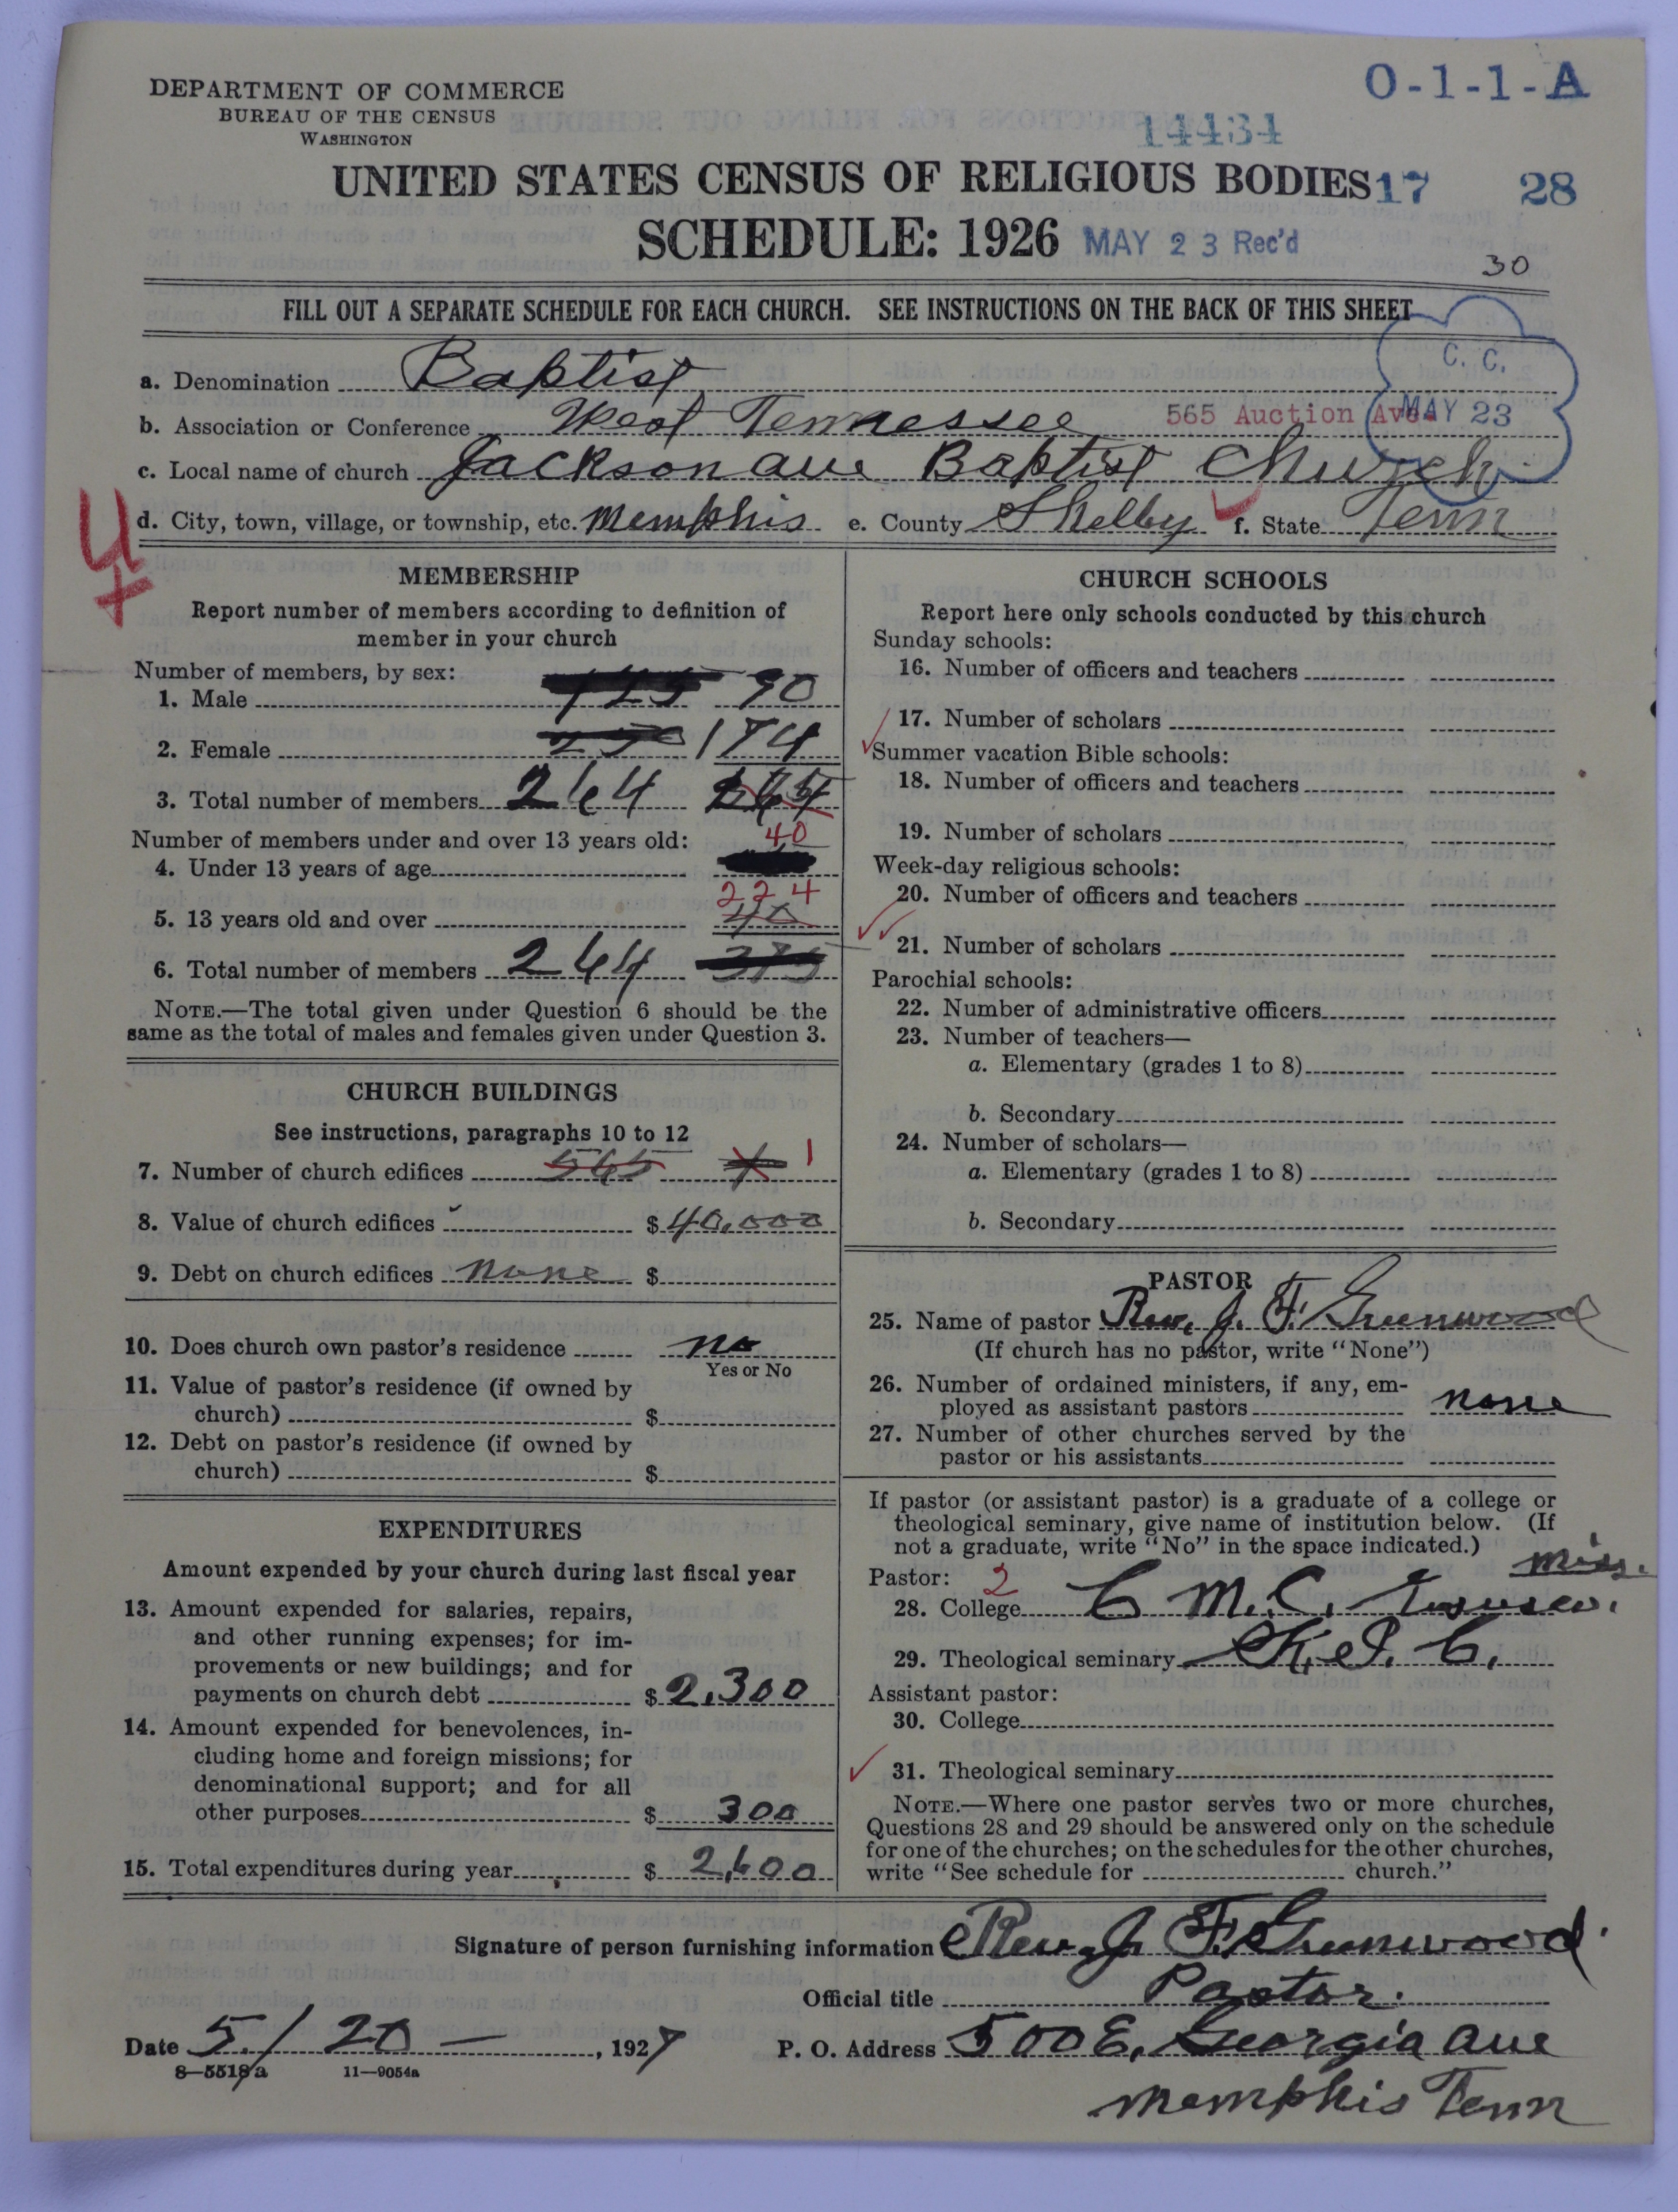 DEPARTMENT OF COMMERCE
BUREAU OF THE CENSUS
WASHINGTON
O-1-1-A
14434
UNITED STATES CENSUS OF RELIGIOUS BODIES 17 28
SCHEDULE: 1926 MAY 23 Rec'd
30
FILL OUT A SEPARATE SCHEDULE FOR EACH CHURCH. SEE INSTRUCTIONS ON THE BACK OF THIS SHEET
C. C.
MAY 23
a. Denomination Baptist
b. Association or Conference West Tennessee 565 Auction Ave.
c. Local name of church Jackson ave Baptist Church
d. City, town, village, or township, etc. Memphis e. County Shelby f. State Tenn
MEMBERSHIP
Report number of members according to definition of
member in your church
Number of members, by sex:
1. Male 125 90
2. Female 174
3. Total number of members 264
Number of members under and over 13 years old:
40
4. Under 13 years of age
224
5. 13 years old and over 40
6. Total number of members 264 375
NOTE.—The total given under Question 6 should be the
same as the total of males and females given under Question 3.
CHURCH BUILDINGS
See instructions, paragraphs 10 to 12
7. Number of church edifices 565 1
8. Value of church edifices $ 40,000
9. Debt on church edifices none $
10. Does church own pastor's residence no
Yes or No
11. Value of pastor's residence (if owned by
church) $
12. Debt on pastor's residence (if owned by
church) $
EXPENDITURES
Amount expended by your church during last fiscal year
13. Amount expended for salaries, repairs,
and other running expenses; for im-
provements or new buildings; and for
payments on church debt $ 2,300
14. Amount expended for benevolences, in-
cluding home and foreign missions; for
denominational support; and for all
other purposes $ 300
15. Total expenditures during year $ 2,600
CHURCH SCHOOLS
Report here only schools conducted by this church
Sunday schools:
16. Number of officers and teachers
17. Number of scholars
Summer vacation Bible schools:
18. Number of officers and teachers
19. Number of scholars
Week-day religious schools:
20. Number of officers and teachers
21. Number of scholars
Parochial schools:
22. Number of administrative officers
23. Number of teachers—
a. Elementary (grades 1 to 8)
b. Secondary
24. Number of scholars—
a. Elementary (grades 1 to 8)
b. Secondary
PASTOR
25. Name of pastor Rev. J. F. Greenwood
(If church has no pastor, write "None")
26. Number of ordained ministers, if any, em-
ployed as assistant pastors none
27. Number of other churches served by the
pastor or his assistants
If pastor (or assistant pastor) is a graduate of a college or
theological seminary, give name of institution below. (If
not a graduate, write "No" in the space indicated.)
Miss.
Pastor: 2
28. College C M. C.
29. Theological seminary
Assistant pastor:
30. College
31. Theological seminary
NOTE.—Where one pastor serves two or more churches,
Questions 28 and 29 should be answered only on the schedule
for one of the churches; on the schedules for the other churches,
write "See schedule for church."
Signature of person furnishing information Rev. J. F. Greenwood
Official title Pastor.
Date 5/20 — , 1927 P. O. Address 500 E. Georgia ave
8—5518a 11—9054a
Memphis Tenn